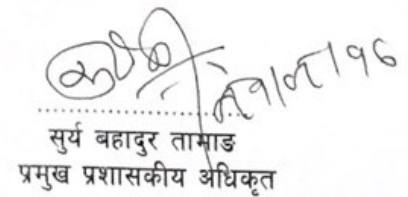 सुर्य बहादुर तामाङ
प्रमुख प्रशासकीय अधिकृत